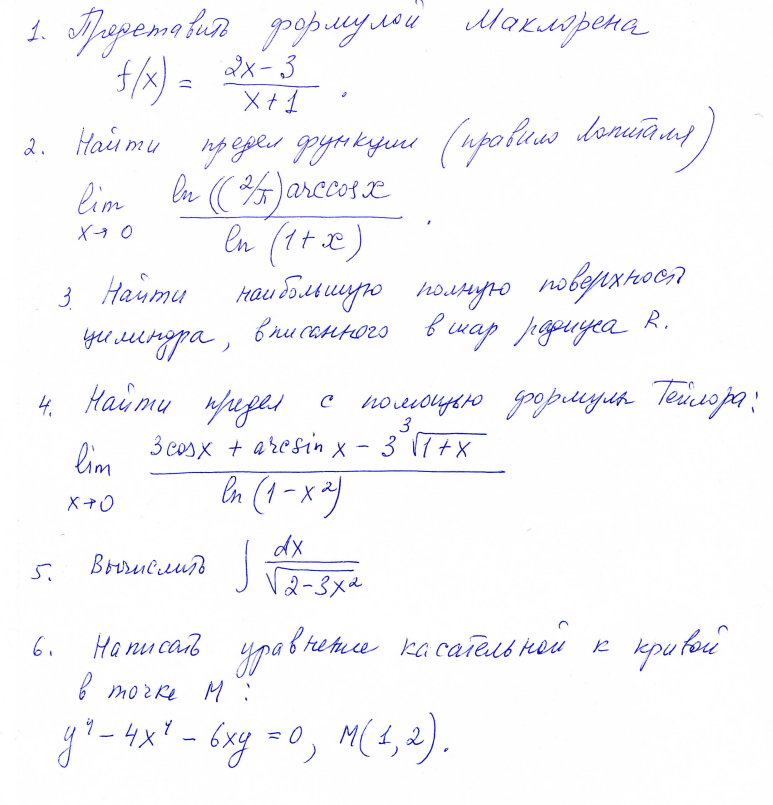 1. Представить формулой Маклорена
f(x) = (2x-3)/(x+1).
2. Найти предел функции (правило Лопиталя)
lim x→0 ln((2/π)arccosx)/ln(1+x).
3. Найти наибольшую полную поверхность
цилиндра, вписанного в шар радиуса R.
4. Найти предел с помощью формулы Тейлора:
lim x→0 (3cosx + arcsinx - 3∛(1+x))/ln(1-x²)
5. Вычислить ∫ dx/√(2-3x²)
6. Написать уравнение касательной к кривой
в точке M:
y⁴ - 4x⁴ - 6xy = 0, M(1,2).